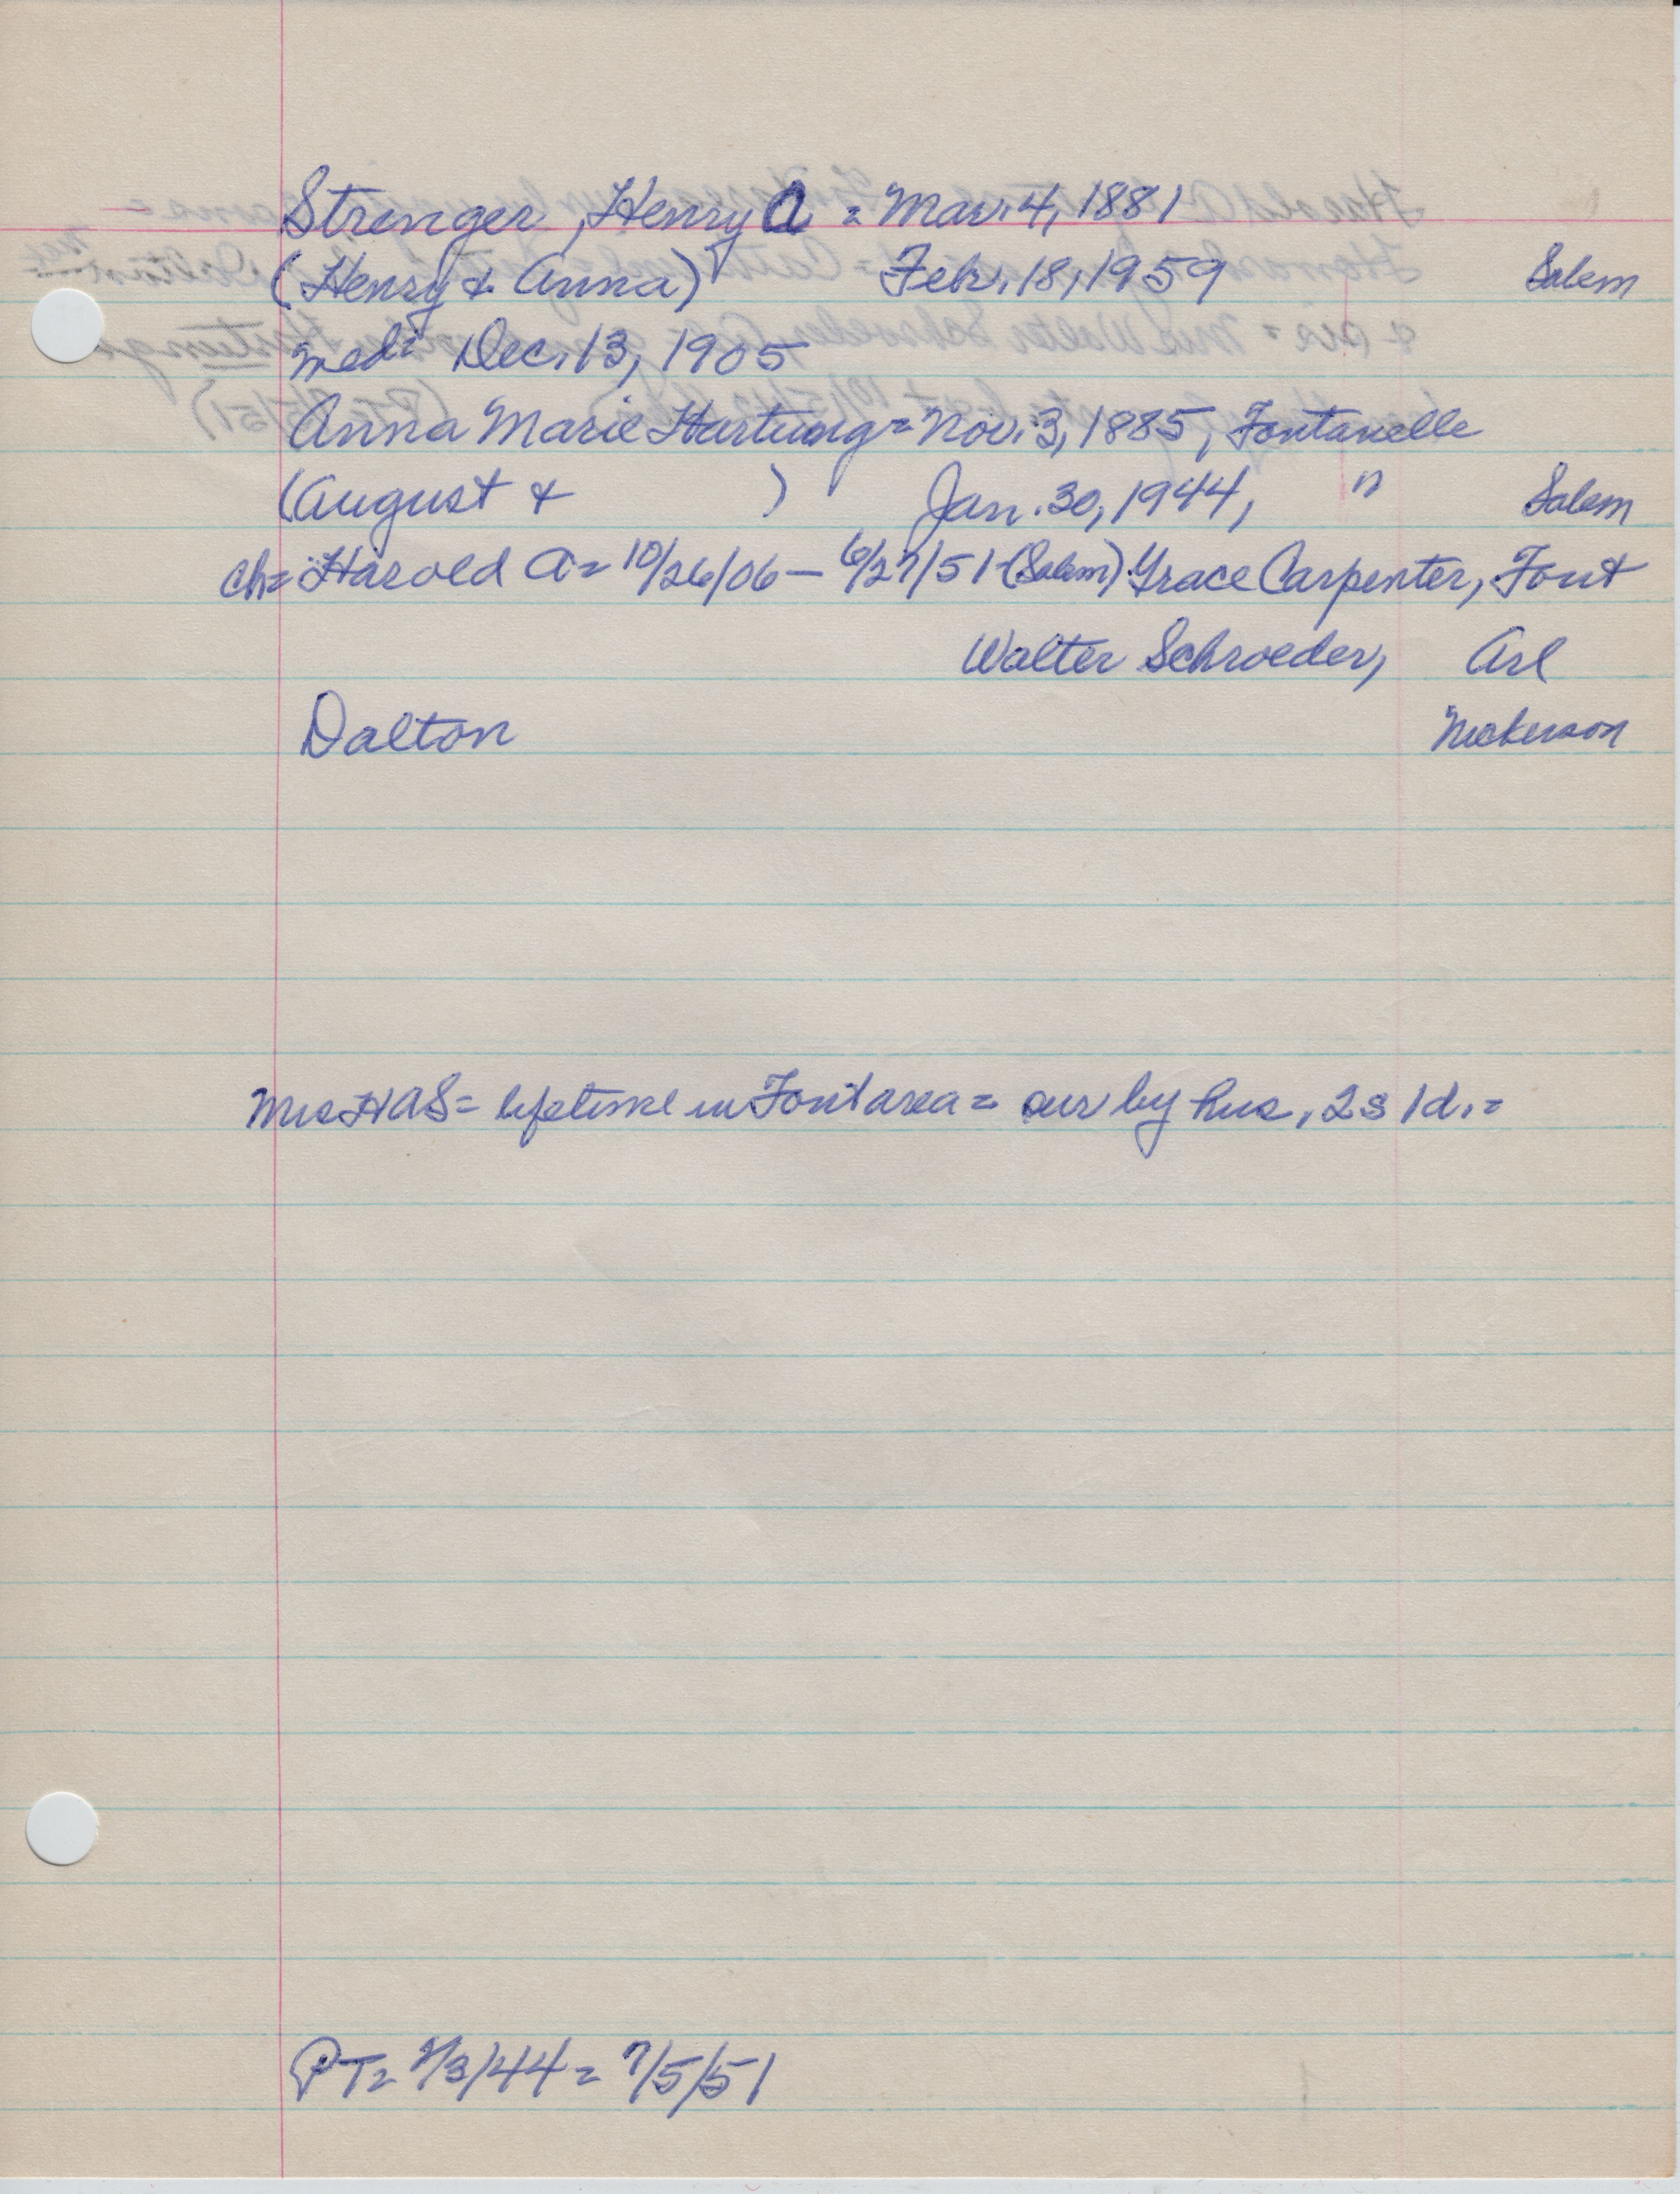 Strenger, Henry A = Mar. 4, 1881
(Henry & Anna) Feb. 18, 1959 Salem
med: Dec. 13, 1905
Anna Marie Hartung = Nov. 3, 1885, Fontanelle
(August & ) Jan. 30, 1944, " Salem
ch = Harold A = 10/26/06 – 6/27/51 (Salem) Grace Carpenter, Font
Walter Schroeder, Arl
Dalton Nickerson
Mrs HAS = lifetime in Font area = sur by hus, 2s 1d. =
PT = 2/3/44 = 7/5/51